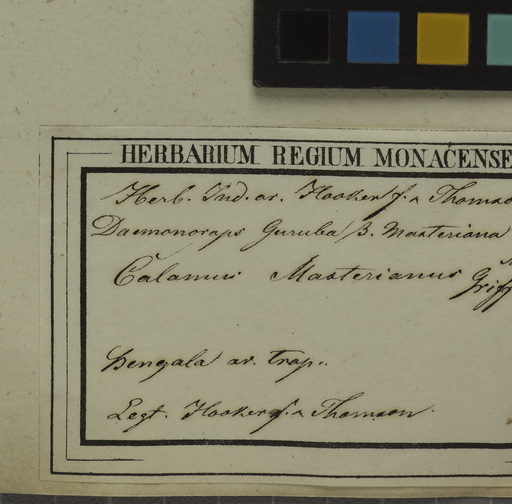 HERBARIUM REGIUM MONACENSE
Herb. Ind. or. Hooker f. & Thomso
Daemonorops Guruba β. Masteriana
Calamus Masterianus Griff
Bengala or. trop.
Legt. Hooker f. & Thomson.